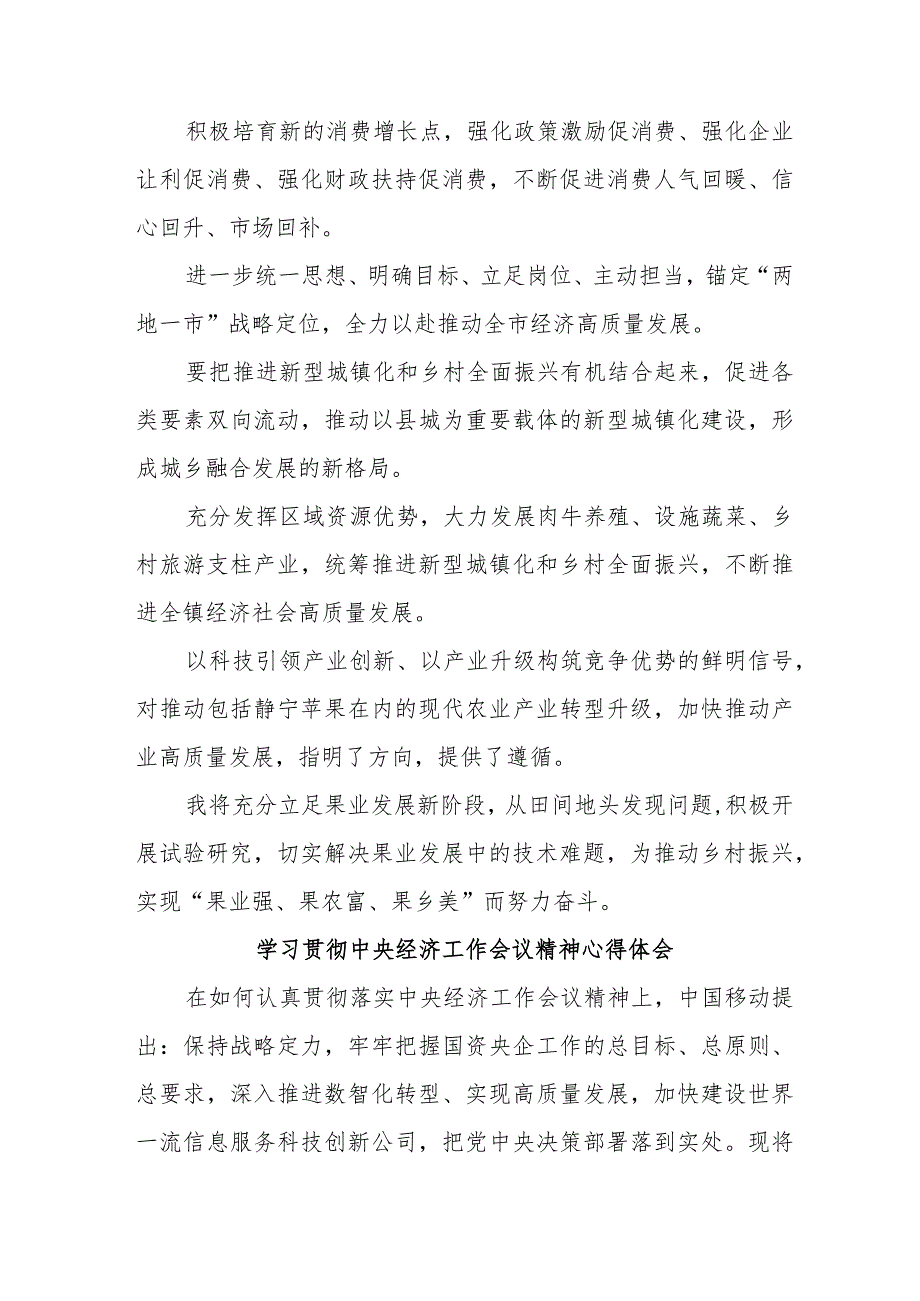 积极培育新的消费增长点，强化政策激励促消费、强化企业
让利促消费、强化财政扶持促消费，不断促进消费人气回暖、信
心回升、市场回补。
进一步统一思想、明确目标、立足岗位、主动担当，锚定“两
地一市”战略定位，全力以赴推动全市经济高质量发展。
要把推进新型城镇化和乡村全面振兴有机结合起来，促进各
类要素双向流动，推动以县城为重要载体的新型城镇化建设，形
成城乡融合发展的新格局。
充分发挥区域资源优势，大力发展肉牛养殖、设施蔬菜、乡
村旅游支柱产业，统筹推进新型城镇化和乡村全面振兴，不断推
进全镇经济社会高质量发展。
以科技引领产业创新、以产业升级构筑竞争优势的鲜明信号，
对推动包括静宁苹果在内的现代农业产业转型升级，加快推动产
业高质量发展，指明了方向，提供了遵循。
我将充分立足果业发展新阶段，从田间地头发现问题,积极开
展试验研究，切实解决果业发展中的技术难题，为推动乡村振兴，
实现“果业强、果农富、果乡美”而努力奋斗。
学习贯彻中央经济工作会议精神心得体会
在如何认真贯彻落实中央经济工作会议精神上，中国移动提
出：保持战略定力，牢牢把握国资央企工作的总目标、总原则、
总要求，深入推进数智化转型、实现高质量发展，加快建设世界
一流信息服务科技创新公司，把党中央决策部署落到实处。现将